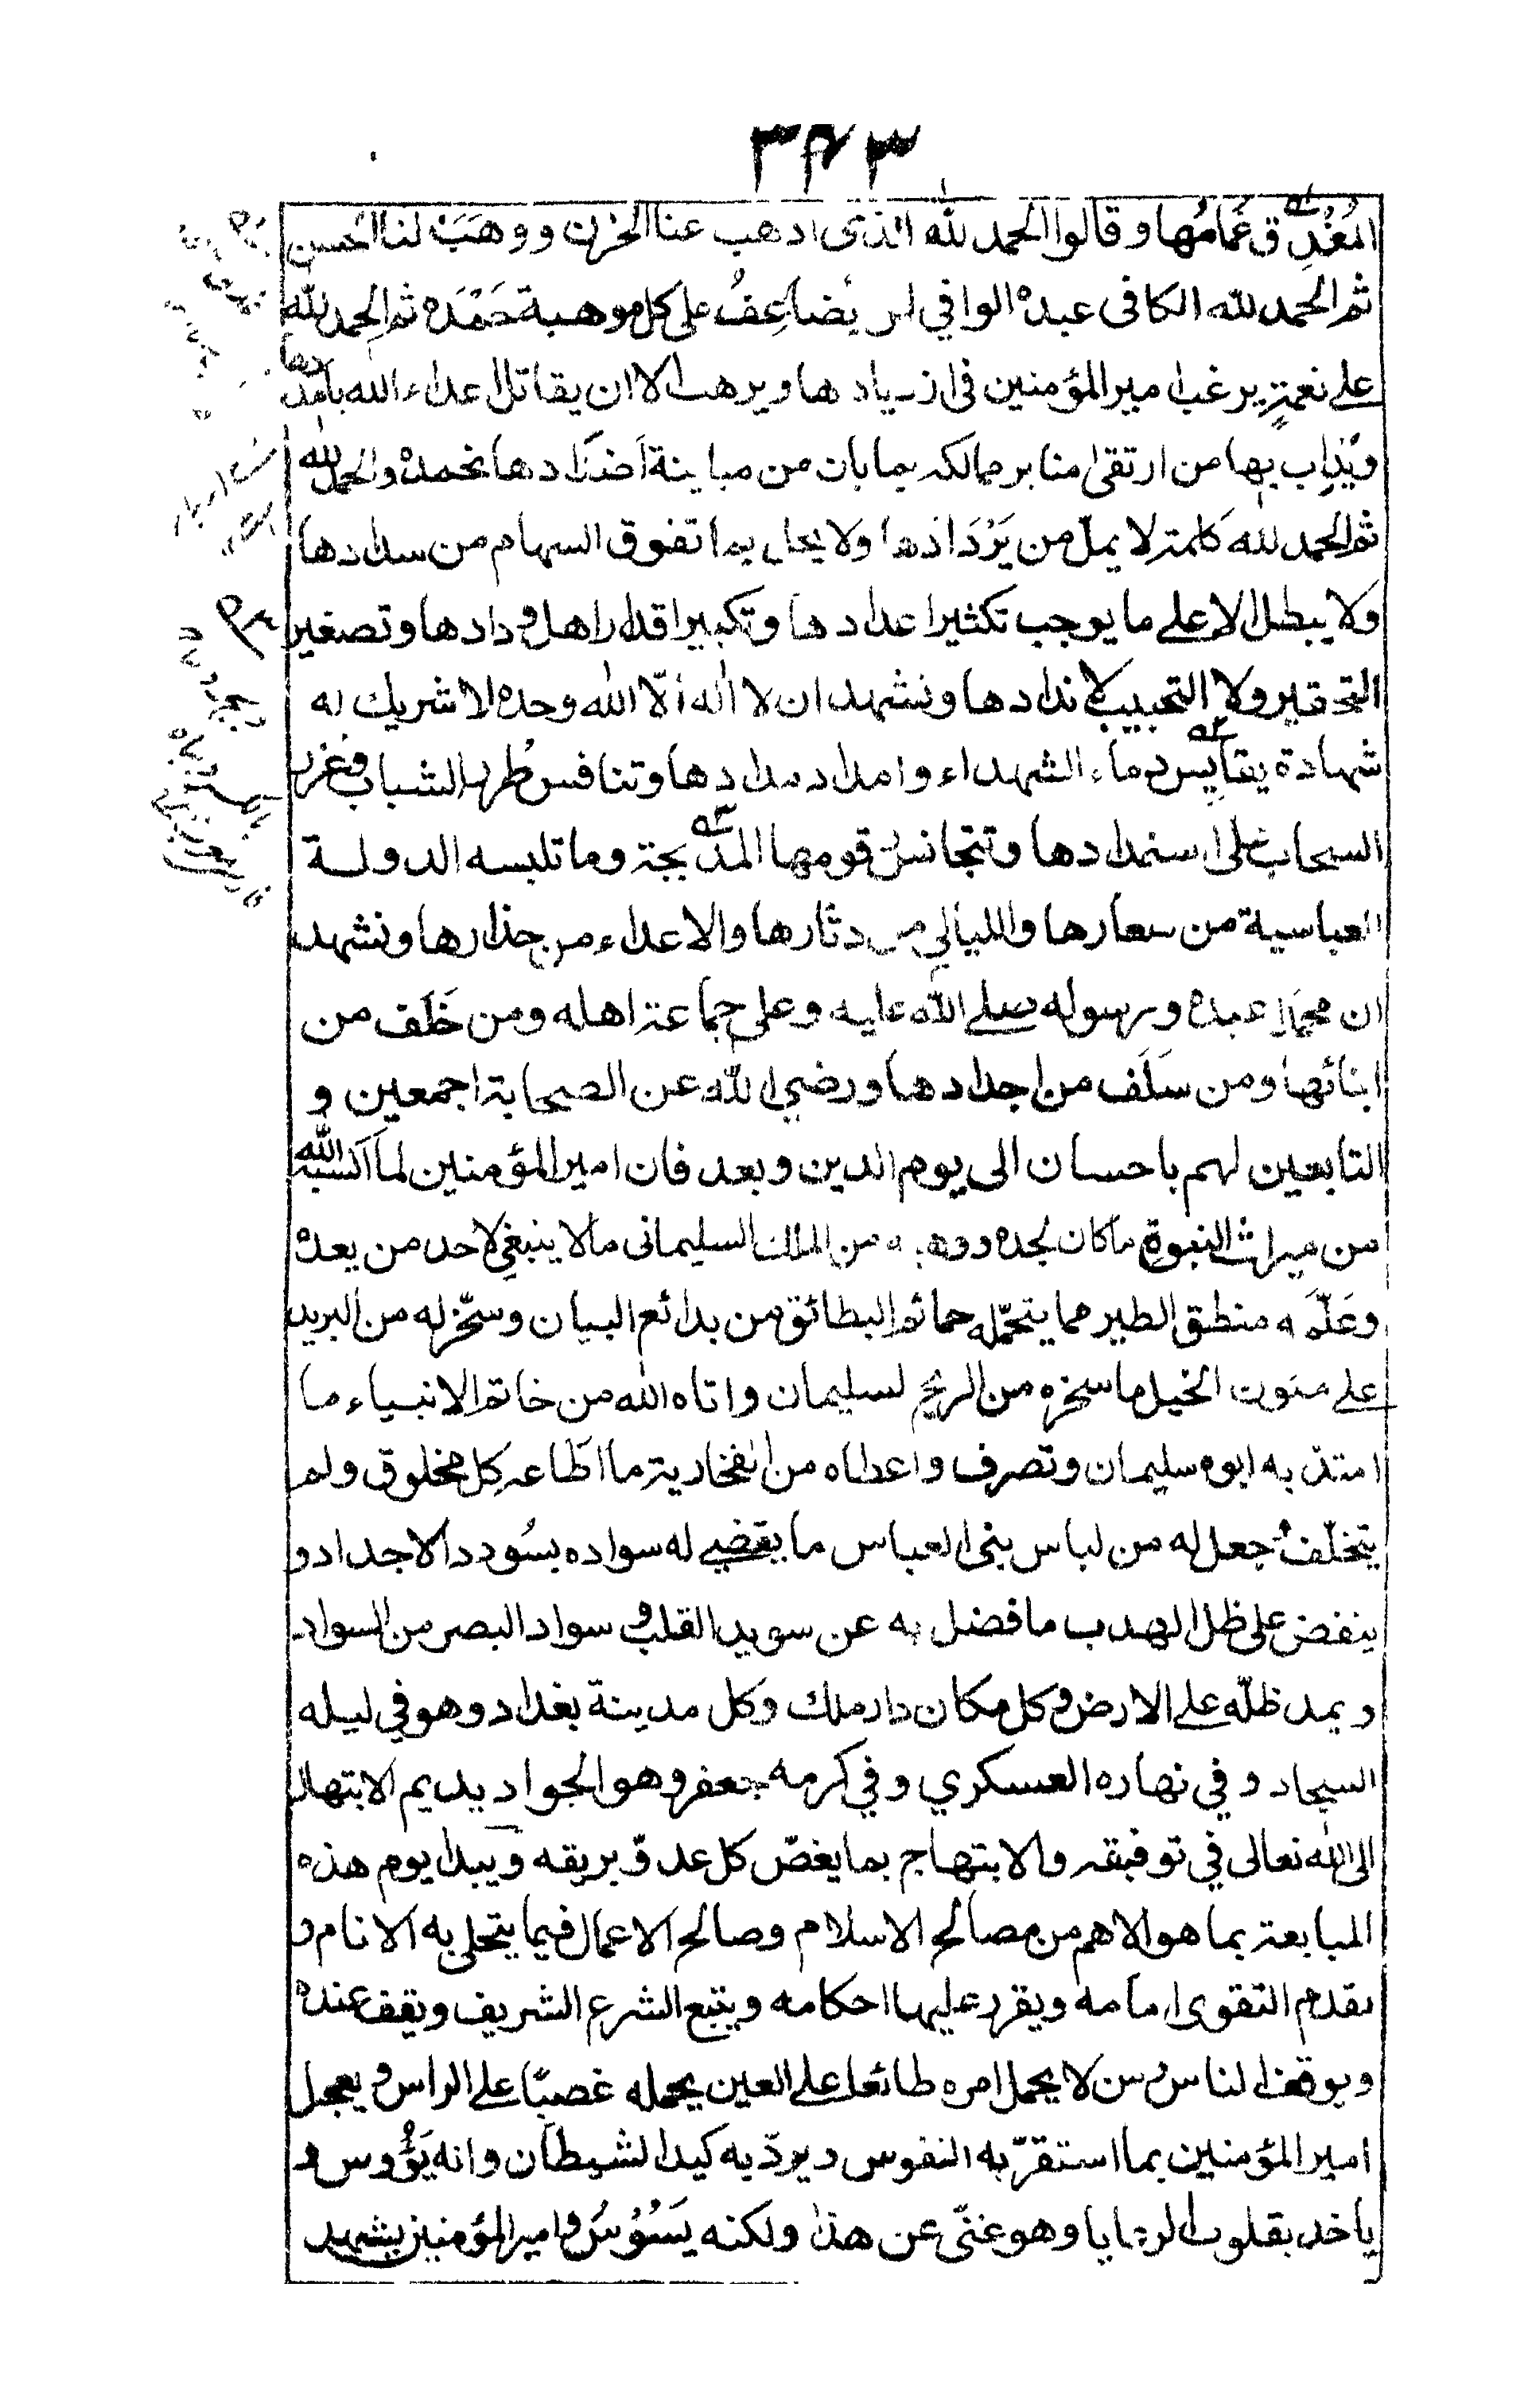 ٣٧٣
المُغْدِق غَمَامُها وقالوا الحمد لله الذى اذهب عنا الحزن ووهَبَ لنا الحسن
ثم الحمد لله الكافى عبده الوافي لمن يُضاعِفُ على كل موهبة حَمْدَه ثم الحمد لله
على نعمةٍ يرغب امير المؤمنين فى ازدياد ها ويرهب الا ان يقاتل اعداء الله بامدادها
ويُذاب بها من ارتقى منابر ممالكه بما بان من مباينة اَضدَاد ها نحمده والحمد لله
ثم الحمد لله كلمة لا يملّ من يَرْدَادها ولا يخل بما تفوق السهام من سدادها
ولا يبطل الا على ما يوجب تكثير اعداد ها وتكبير اقدار اهل ودادها وتصغير
التحقير ولا التحبيب لاندادها ونشهد ان لا اله الّا الله وحده لا شريك له
شهادة يقايس دماء الشهداء وامداد مدادها وتنافس طُرر الشباب وغرر
السحاب على استمدادها وتتجانس رقومها المدبجة وما تلبسه الدولة
العباسية من شعارها والليالي من دثارها والاعداء من جذارها ونشهد
ان محمدا عبده ورسوله صلى الله عليه وعلى جماعة اهله ومن خَلَف من
ابنائها ومن سَلَف من اجدادها ورضي الله عن الصحابة اجمعين و
التابعين لهم باحسان الى يوم الدين وبعد فان امير المؤمنين لما اَكسبه الله
من ميراث النبوة ما كان لجده ووهبه من الملك السليمانى ما لا ينبغي لاحد من بعده
وعَلّمَه منطق الطير مما يتحمّله حمائم البطائق من بدائع البيان وسخّر له من البريد
على متون الخيل ما سخره من الريح لسليمان واتاه الله من خاتم الانبياء ما
امتدّ به ابوه سليمان وتصرف واعطاه من الفخار به ما اطاعه كل مخلوق ولم
يتخلّف وجعل له من لباس بنى العباس ما يقضي له سواده بسُودد الاجداد و
ينفض على ظل الهدب ما فضل به عن سويد القلب و سواد البصر من السواد
ويمد ظلّه على الارض و كل مكان دار ملك وكل مدينة بغداد وهو في ليله
السجاد وفي نهاره العسكري وفي كرمه جعفر وهو الجواد يديم الابتهال
الى الله تعالى في توفيقه والابتهاج بما يغصّ كل عدوّ بريقه ويبدا يوم هذه
المبايعة بما هو الاهم من مصالح الاسلام وصالح الاعمال فيما يتحلى به الانام و
يقدم التقوى امامه ويقرر عليها احكامه ويتبع الشرع الشريف ويقف عنده
ويوقف الناس ومن لا يحمل امره طائعا على العين يحمله غصبًا على الراس و يعجل
امير المؤمنين بما استقرّ به النفوس ويردّ به كيد الشيطان وانه يَؤُوس و
ياخذ بقلوب الرعايا وهو غنّى عن هذا ولكنه يَسُوُسُ وامير المؤمنين يشهد